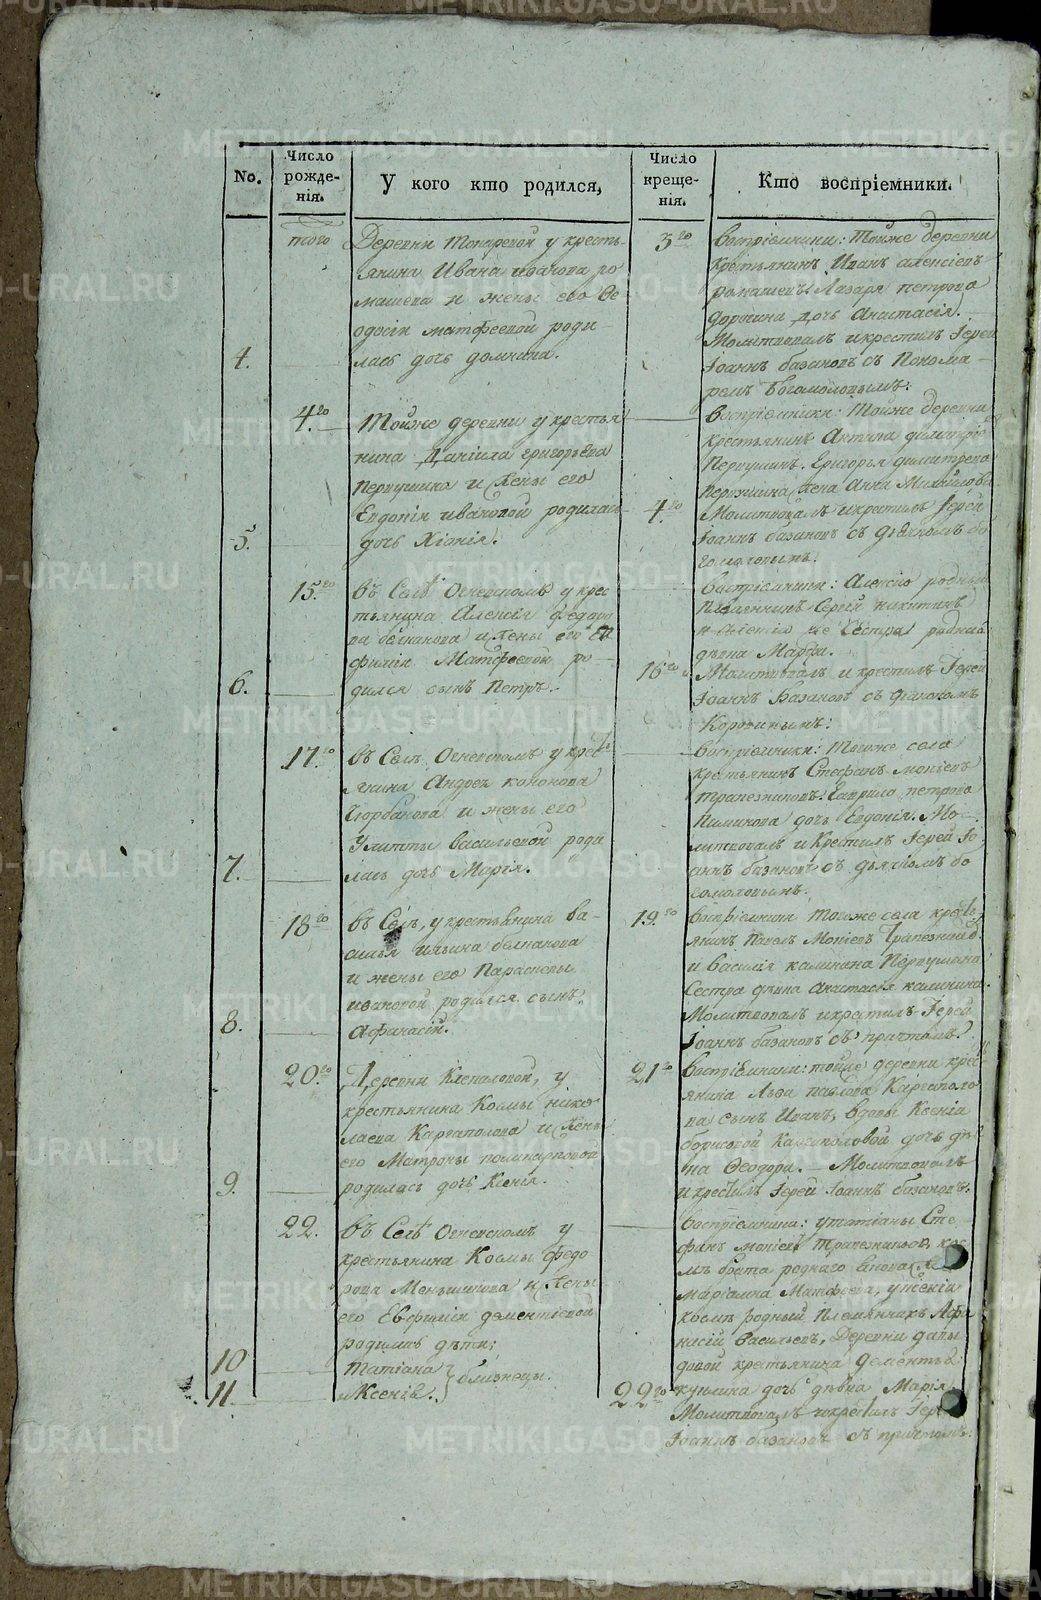 No.
Число рожде-нія.
У кого кто родился,
Число креще-нія.
Кто воспріемники.
того
4.
Деревни у кресть-
янина Ивана Иванова Ро
машева и жены его Ѳе
одосіи Матфеевой роди-
лась дочь Домника.
3го
Воспріемники: Тойже деревни
крестьянинъ Иванъ Алексіевъ
Ромашевъ, Лазаря Петрова
дочь Анастасія.
Молитвовалъ и крестилъ Іерей
Іоаннъ Базановъ съ Понома-
ремъ Богомоловымъ.
4го
5.
Тойже деревни у крестья
нина Даніила Григорьева
Первушина и жены его
Евдокіи Ивановой родилась
дочь
4го
Воспріемники: Тойже деревни
крестьянинъ Димитріе
Первушинъ. Григорья Димитрева
Первушина жена Анна Михайлова
Молитвовалъ и крестилъ Іерей
Іоаннъ Базановъ съ дьячкомъ Бо
гомоловымъ.
15го
6.
Въ Селѣ Огневскомъ у крес
тьянина Алексія Ѳедоро
ва и жены его Ев
фиміи Матфеевой ро-
дился сынъ Петръ.
16го
Воспріемники: Алексію родный
племянникъ Сергей Никитинъ
и сестра родная
дѣвка Марфа.
Молитвовалъ и крестилъ Іерей
Іоаннъ Базановъ съ Діакономъ
17го
7.
Въ Селѣ Огневскомъ у крест
янина Андрея Кононова
и жены его
Улитты Васильевой роди
лась дочь Марія.
Воспріемники: Тогоже села
крестьянинъ Стефанъ Мокіевъ
Трапезниковъ. Гаврило Петрова
дочь Евдокія. Мо-
литвовалъ и Крестилъ Іерей Іо-
аннъ Базановъ съ дьячкомъ Бо
гомоловымъ.
18го
8.
Въ Селѣ, у крестьянина Ва-
силья Ильина
и жены его Парасковьи
Ивановой родился сынъ
Афанасій.
19го
Воспріемники Тогоже села кресть
янинъ Павелъ Мокіевъ Трапезников
и Василія Калинина Первушина
Сестра дѣвка Анастасія Калинина.
Молитвовалъ и крестилъ Іерей
Іоаннъ Базановъ съ причтомъ.
20го
9.
Деревни Клепаловой, у
крестьянина Космы Нико
лаева Каргаполова и жены
его Матроны Поликарповой
родилась дочь Ксенія.
21го
Воспріемники: тойже деревни крес
янина Льва Павлова Каргаполо
ва сынъ Иванъ, вдовы Ксеніи
Борисовой дочь дѣ
вка Ѳеодора. - Молитвовалъ
и крестилъ Іерей Іоаннъ Базановъ.
22.
10
11.
Въ Селѣ Огневскомъ у
крестьянина Космы Ѳедо
рова Меньшикова и жены
его Евфиміи Дементіевой
родились дѣти:
Татіана
и Ксенія. } близнецы.
22го
Воспріемники: у Татіаны Сте
фанъ Мокіевъ Трапезниковъ, Кос
мѣ брата роднаго вдова
Маріанна Матфеева, у Ксеніи
Космѣ родный Племянникъ Афа
насій Васильевъ, Деревни Давы
довой крестьянина Дементья
дочь дѣвка Марія
Молитвовалъ и крестилъ Іерей
Іоаннъ Базановъ съ причтомъ.
METRIKI.GASO-URAL.RU